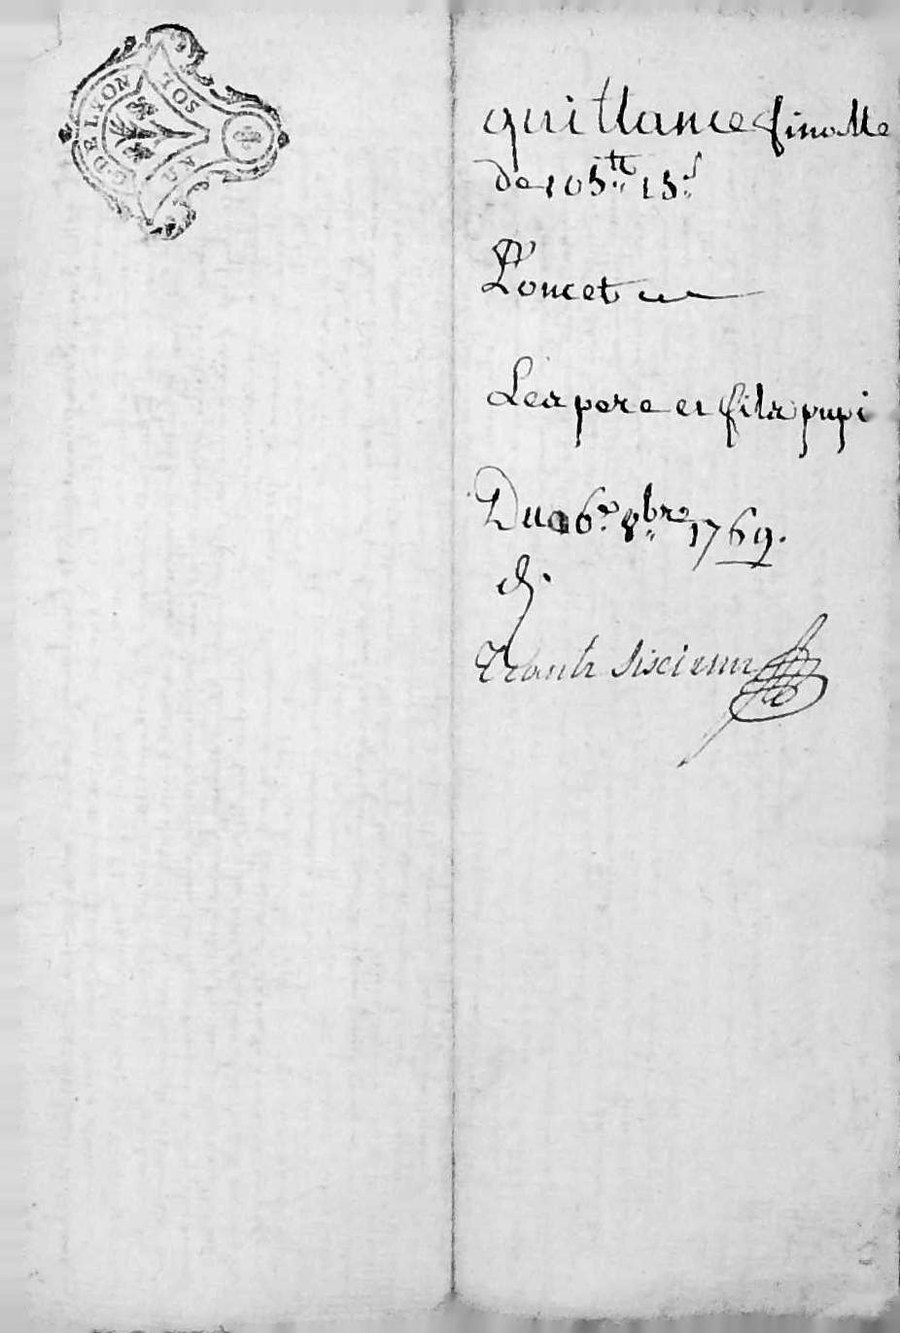 G. DE LYON
A
SOL
quittance finalle
de 105ᵗᵗ 15ˢ
Poncet
Les pere et fils pupi
Du 6ᵉ 8ᵇʳᵉ 1769.
Trante sixieme